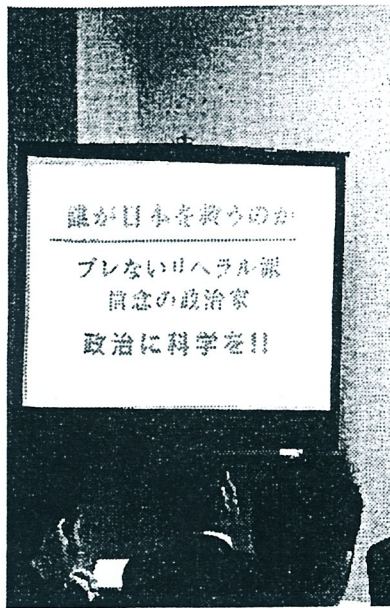 誰が日本を救うのか
ブレないリベラル派
信念の政治家
政治に科学を!!